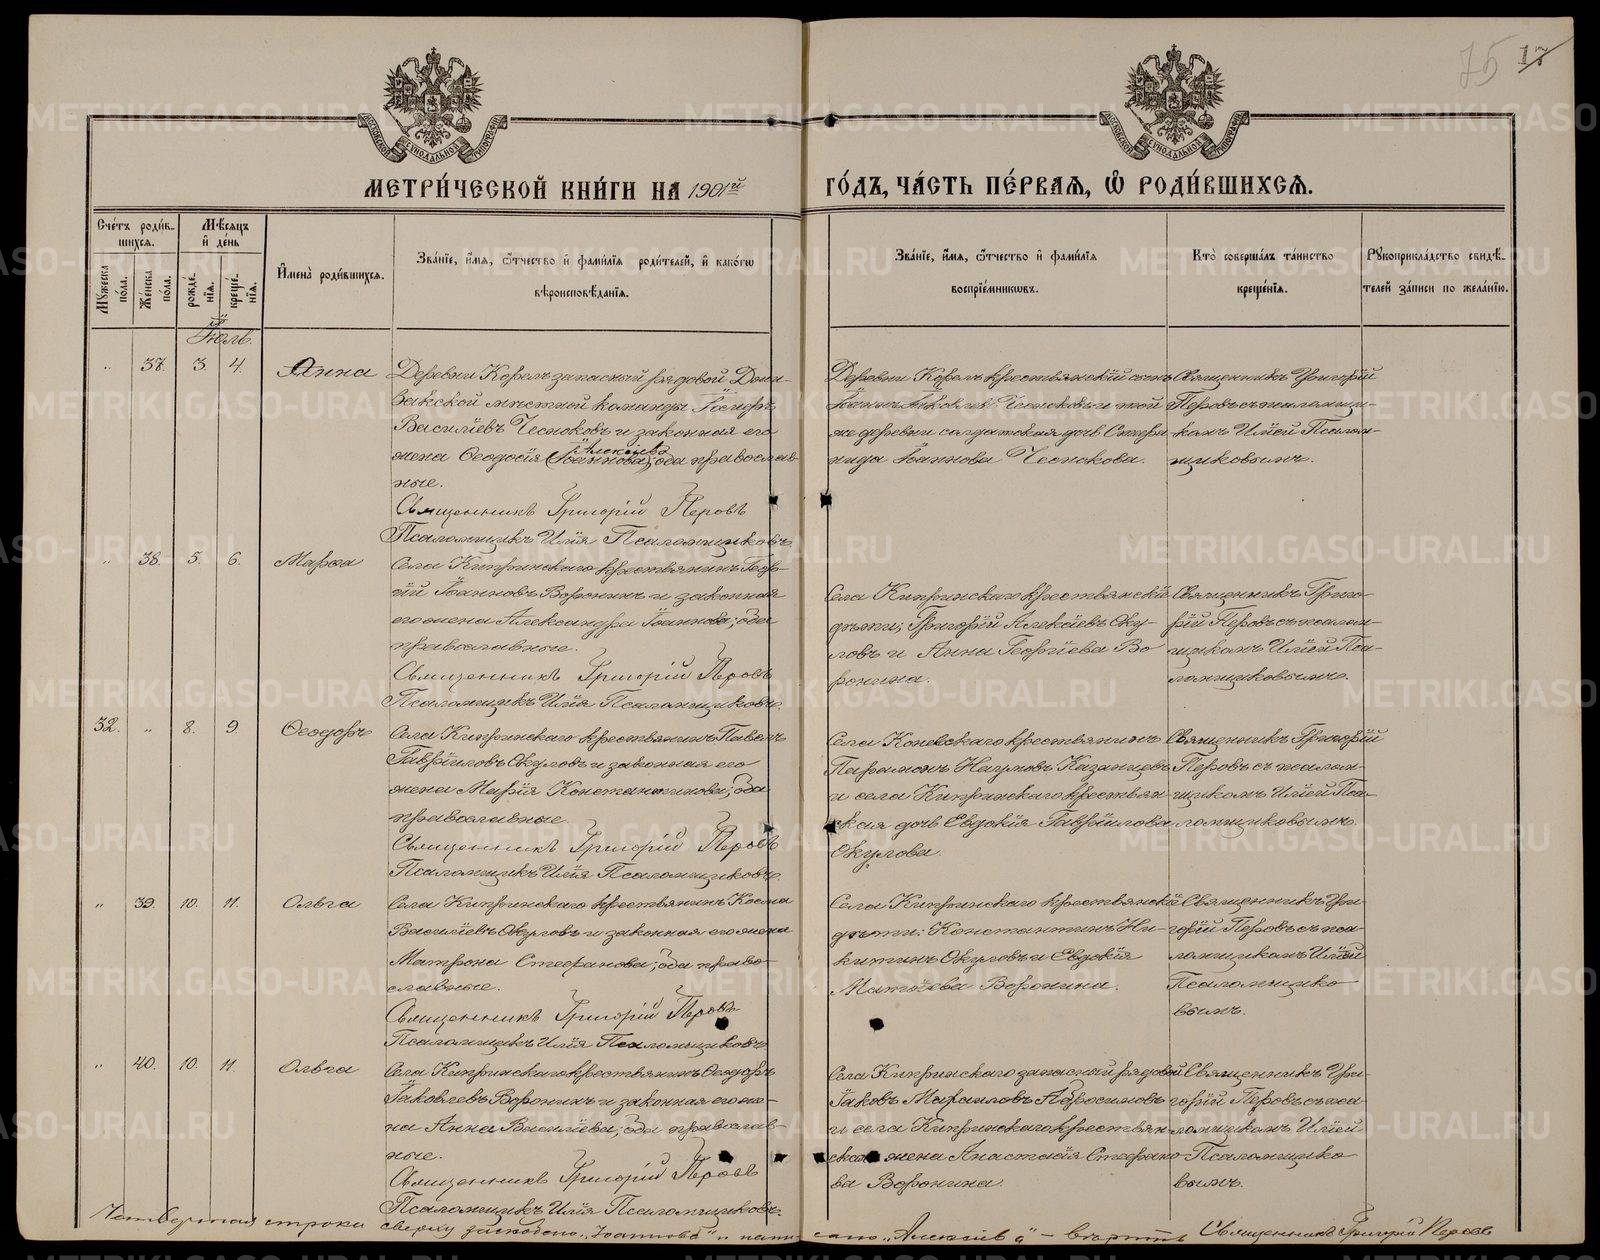 75 17
МЕТРИ́ЧЕСКОЙ КНИ́ГИ НА 1901й ГО́ДЪ, ЧА́СТЬ ПЕ́РВАЯ, Ѿ РОДИ́ВШИХСЯ.
Сче́тъ роди́вшихся.
Мѣ́сяцъ и҆ де́нь
Мꙋ́жеска по́ла.
Же́нска по́ла.
рожде́нїѧ.
креще́нїѧ.
И҆мена̀ роди́вшихся.
Зва́нїе, и҆́мѧ, ѻ҆́тчество и҆ фами́лїѧ роди́телей, и҆ како́гѡ вѣроисповѣ́данїѧ.
Зва́нїе, и҆́мѧ, ѻ҆́тчество и҆ фами́лїѧ воспрїе́мникѡвъ.
Кто̀ соверша́лъ та́инство креще́нїѧ.
Рꙋкоприкла́дство свидѣ́телей за́писи по жела́нїю.
Іюль.
" 37. 3. 4. Анна
Деревни Корелъ запасный рядовой
мѣстной команды
Василіевъ Чесноковъ и законная его
Алексіева
жена Ѳеодосія (Іоаннова); оба православ-
ные.
Священникъ Григорій Перовъ
Псаломщикъ Илія Псаломщиковъ
Деревни Корелъ крестьянскій сынъ
Іоаннъ Іаковлевъ Чесноковъ и той
же деревни солдатская дочь Стефа-
нида Іоаннова Чеснокова.
Священникъ Григорій
Перовъ съ псаломщи-
комъ Иліей Псалом-
щиковымъ.
" 38. 5. 6. Марѳа
Села Кипринскаго крестьянинъ Геор-
гій Іоанновъ Воронинъ и законная
его жена Александра Іоаннова; оба
православные.
Священникъ Григорій Перовъ
Псаломщикъ Илія Псаломщиковъ.
Села Кипринскаго крестьянскій
дѣти; Григорій Алексіевъ Оку-
ловъ и Анна Георгіева Во-
ронина.
Священникъ Григо-
рій Перовъ съ псалом-
щикомъ Иліей Пса-
ломщиковымъ.
32. " 8. 9. Ѳеодоръ
Села Кипринскаго крестьянинъ Павелъ
Гавріиловъ Окуловъ и законная его
жена Марія Константинова; оба
православные.
Священникъ Григорій Перовъ
Псаломщикъ Илія Псаломщиковъ.
Села Коневскаго крестьянинъ
Парамонъ Наумовъ Казанцевъ
и села Кипринскаго крестьян-
ская дочь Евдокія Гавріилова
Окулова.
Священникъ Григорій
Перовъ съ псалом-
щикомъ Иліей Пса-
ломщиковымъ.
" 39. 10. 11. Ольга
Села Кипринскаго крестьянинъ Косма
Василіевъ Окуловъ и законная его жена
Матрона Стефанова; оба право-
славные.
Священникъ Григорій Перовъ
Псаломщикъ Илія Псаломщиковъ
Села Кипринскаго крестьянскіе
дѣти: Константинъ Ни-
китинъ Окуловъ и Евдокія
Матѳіева Воронина.
Священникъ Гри-
горій Перовъ съ пса-
ломщикомъ Иліей
Псаломщико-
вымъ.
" 40. 10. 11. Ольга
Села Кипринскаго крестьянинъ Ѳеодоръ
Іаковлевъ Воронинъ и законная его же-
на Анна Василіева; оба православ-
ные.
Священникъ Григорій Перовъ
Псаломщикъ Илія Псаломщиковъ.
Села Кипринскаго запасный рядовой
Іаковъ Михаиловъ Абросимовъ
и села Кипринскаго крестьян-
ская жена Анастасія Стефано-
ва Воронина.
Священникъ Гри-
горій Перовъ съ пса-
ломщикомъ Иліей
Псаломщико-
вымъ.
Четвертая строка сверху "Іоаннова" и написано "Алексіева" – вѣрить Священникъ Григорій Перовъ
METRIKI.GASO-URAL.RU